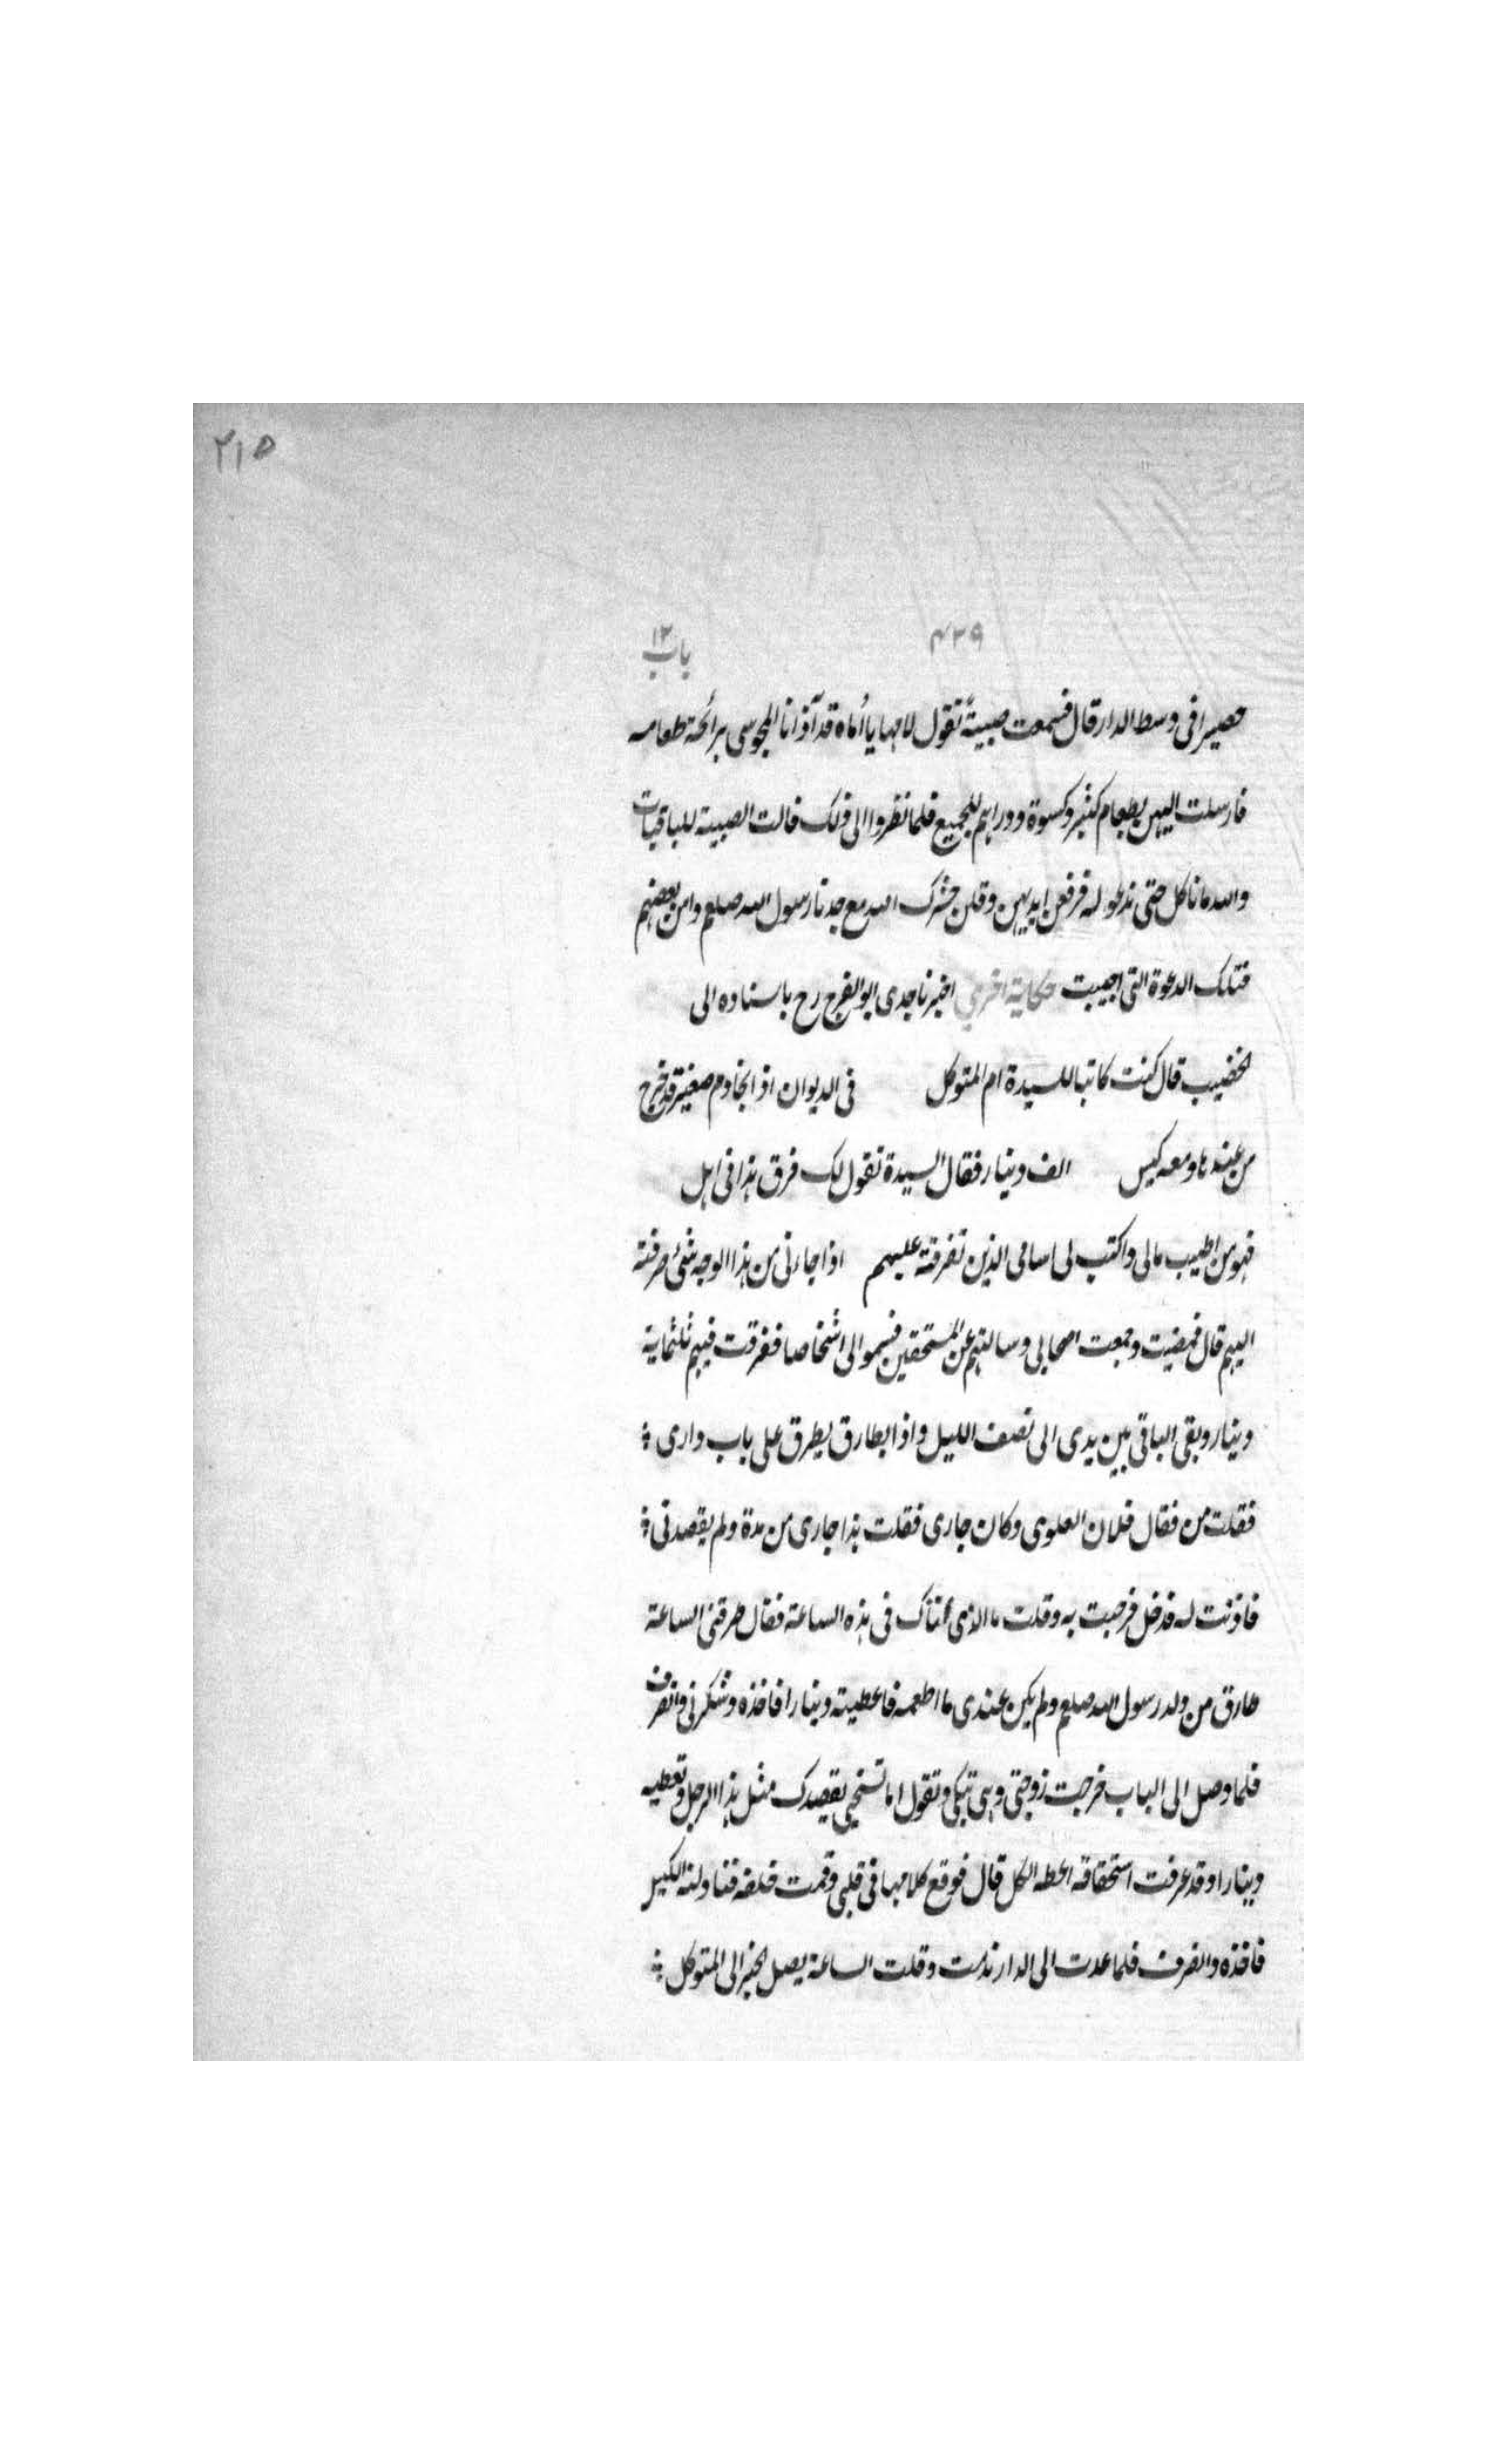 ٢١٥
٤٢٩
باب ١٢
حصيرا فى وسط الدار قال فسمعت صبيةً تقول لامها يا أماه قد آذانا المجوسى برائحة طعامه
فارسلت اليهن بطعام كثير وكسوة ودراهم للجميع فلما نظروا الى ذلك قالت الصبية للباقيات
والله ما ناكل حتى ندعو له فرفعن ايديهن وقلن حشرك الله مع جدنا رسول الله صلعم وامن بعضهم
فتلك الدعوة التى اجيبت حكاية اخرى اخبرنا جدى ابو الفرج رح باسناده الى
الخضيب قال كنت كاتبا للسيدة ام المتوكل فى الديوان اذا بخادم صغير قد خرج
من عندها ومعه كيس الف دينار فقال السيدة تقول لك فرق هذا فى اهل
فهو من اطيب مالى واكتب لى اسامى الذين تفرقته عليهم اذا جاءنى من هذا الوجه شئ صرفته
اليهم قال فمضيت وجمعت اصحابى وسالتهم عن المستحقين فسموا الى اشخاصا ففرقت فيهم ثلثماية
دينار وبقى الباقى بين يدى الى نصف الليل واذا بطارق يطرق على باب دارى
فقلت من فقال فلان العلوى وكان جارى فقلت هذا جارى من مدة ولم يقصدنى
فاذنت له فدخل فرحبت به وقلت ما الذى عناك فى هذه الساعة فقال طرقنى الساعة
طارق من ولد رسول الله صلعم ولم يكن عندى ما اطعمه فاعطيته دينارا فاخذه وشكرنى وانصرف
فلما وصل الى الباب خرجت زوجتى وهى تبكى وتقول اما تستحيى يقصدك مثل هذا الرجل وتعطيه
دينارا وقد عرفت استحقاقه اعطه الكل قال فوقع كلامها فى قلبى وقمت خلفه فناولته الكيس
فاخذه وانصرف فلما عدت الى الدار ندمت وقلت الساعة يصل الخبر الى المتوكل